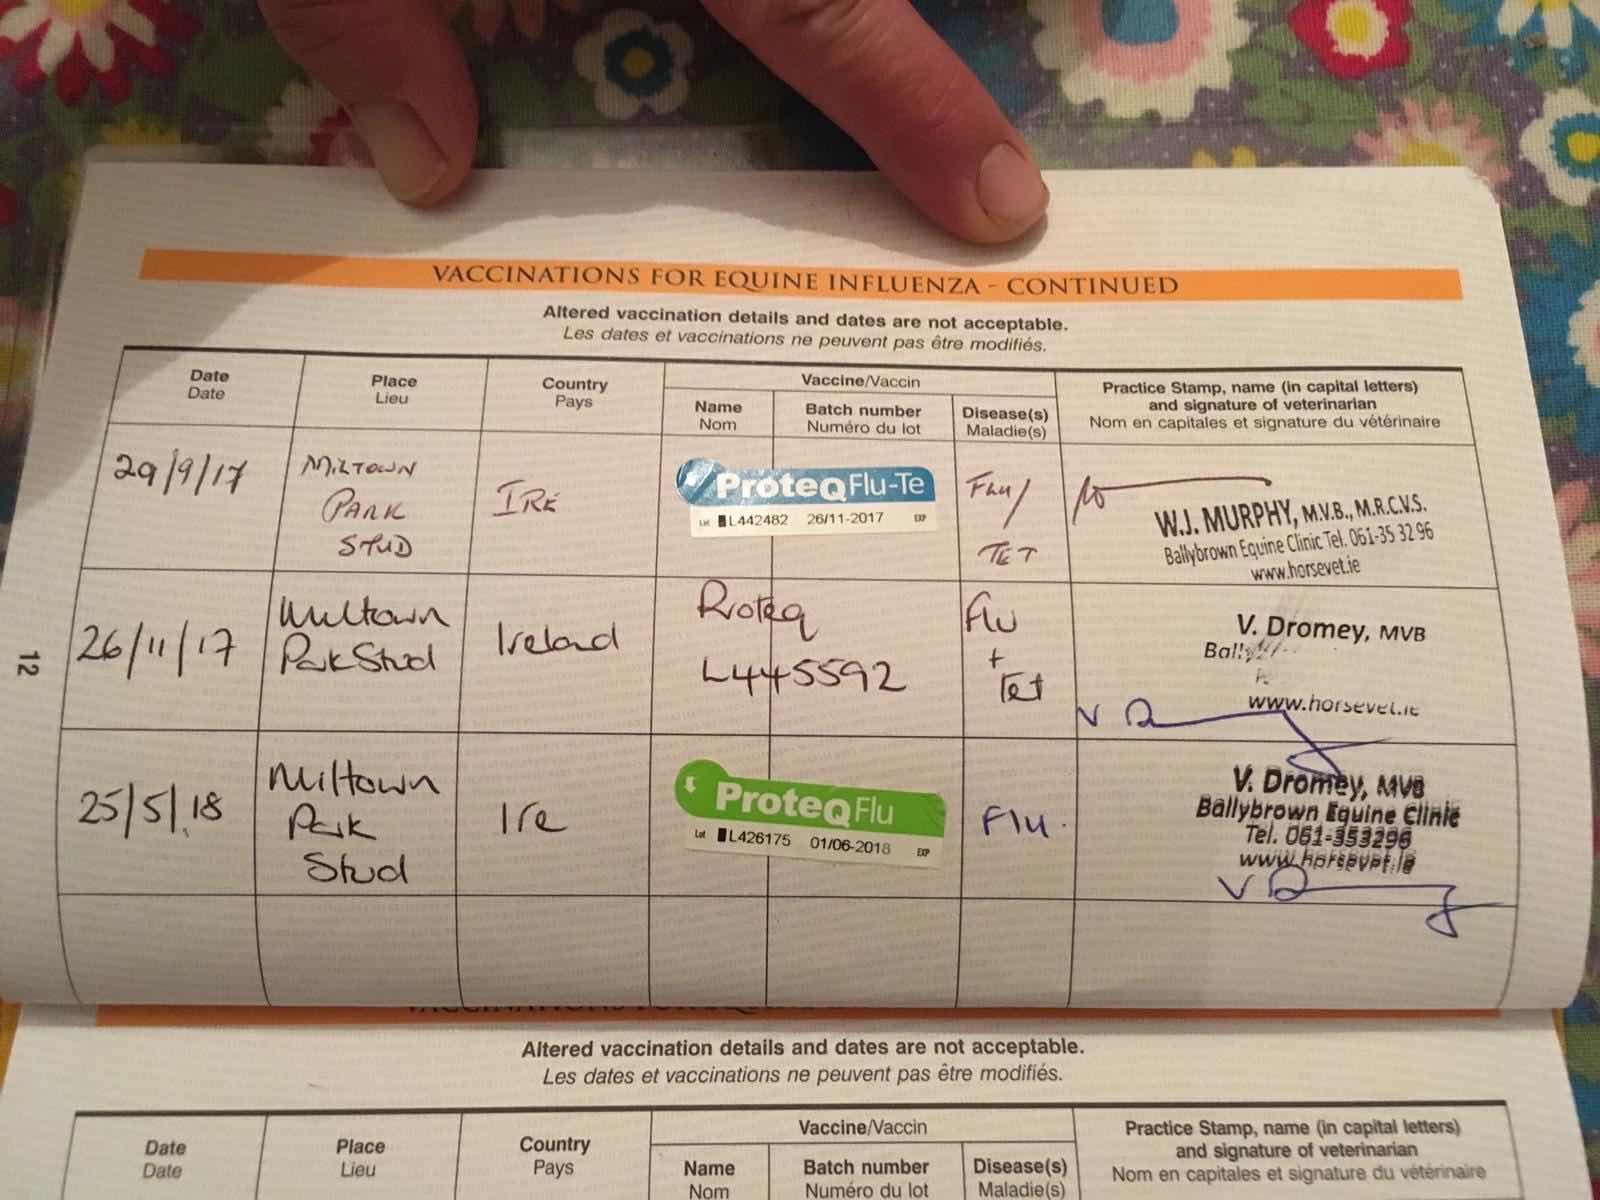 VACCINATIONS FOR EQUINE INFLUENZA - CONTINUED
Altered vaccination details and dates are not acceptable.
Les dates et vaccinations ne peuvent pas être modifiés.
Date
Date
Place
Lieu
Country
Pays
Vaccine/Vaccin
Name
Nom
Batch number
Numéro du lot
Disease(s)
Maladie(s)
Practice Stamp, name (in capital letters)
and signature of veterinarian
Nom en capitales et signature du vétérinaire
29/9/17
MILTOWN
PARK
STUD
IRE
ProteqFlu-Te
Lot L442482 26/11-2017 EXP
Flu/
TET
W.J. MURPHY, M.V.B., M.R.C.V.S.
Ballybrown Equine Clinic Tel. 061-35 32 96
www.horsevet.ie
26/11/17
Miltown
Park Stud
Ireland
Proteq
L445592
Flu
+
Tet
V. Dromey, MVB
Bally
www.horsevet.ie
25/5/18
Miltown
Park
Stud
Ire
ProteqFlu
Lot L426175 01/06-2018 EXP
Flu.
V. Dromey, MVB
Ballybrown Equine Clinic
Tel. 061-353296
www.horsevet.ie
12
Altered vaccination details and dates are not acceptable.
Les dates et vaccinations ne peuvent pas être modifiés.
Date
Date
Place
Lieu
Country
Pays
Vaccine/Vaccin
Name
Nom
Batch number
Numéro du lot
Disease(s)
Maladie(s)
Practice Stamp, name (in capital letters)
and signature of veterinarian
Nom en capitales et signature du vétérinaire